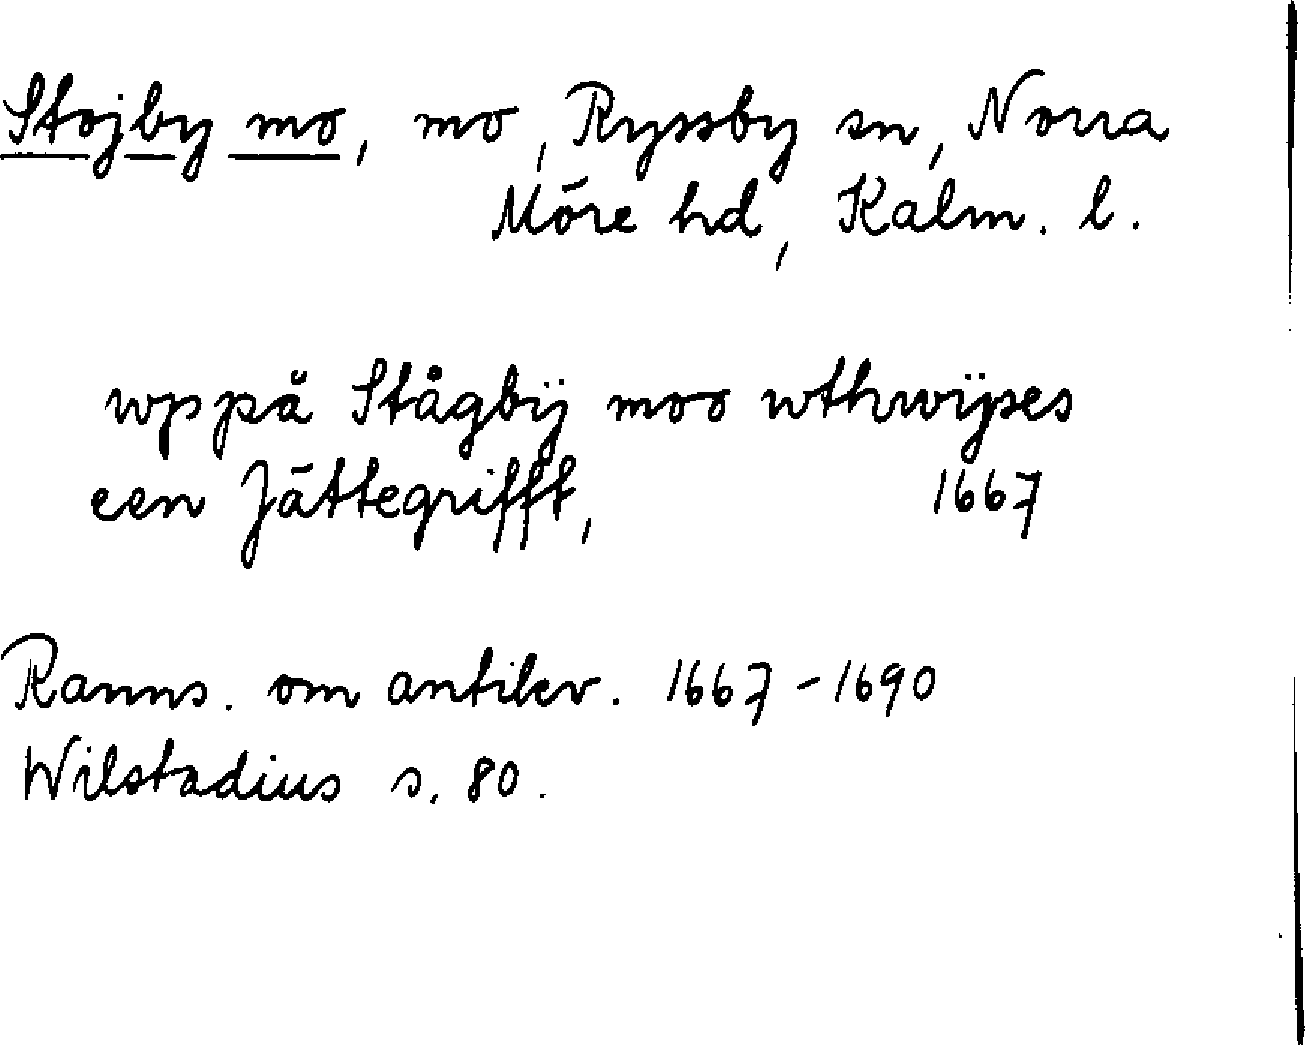 Stojby mo, mo, Ryssby sn, Norra
Möre hd, Kalm. l.
wppå Stågbÿ moo wthwÿses
een Jättegrifft, 1667
Ranns. om antikv. 1667-1690
Wilstadius s. 80.